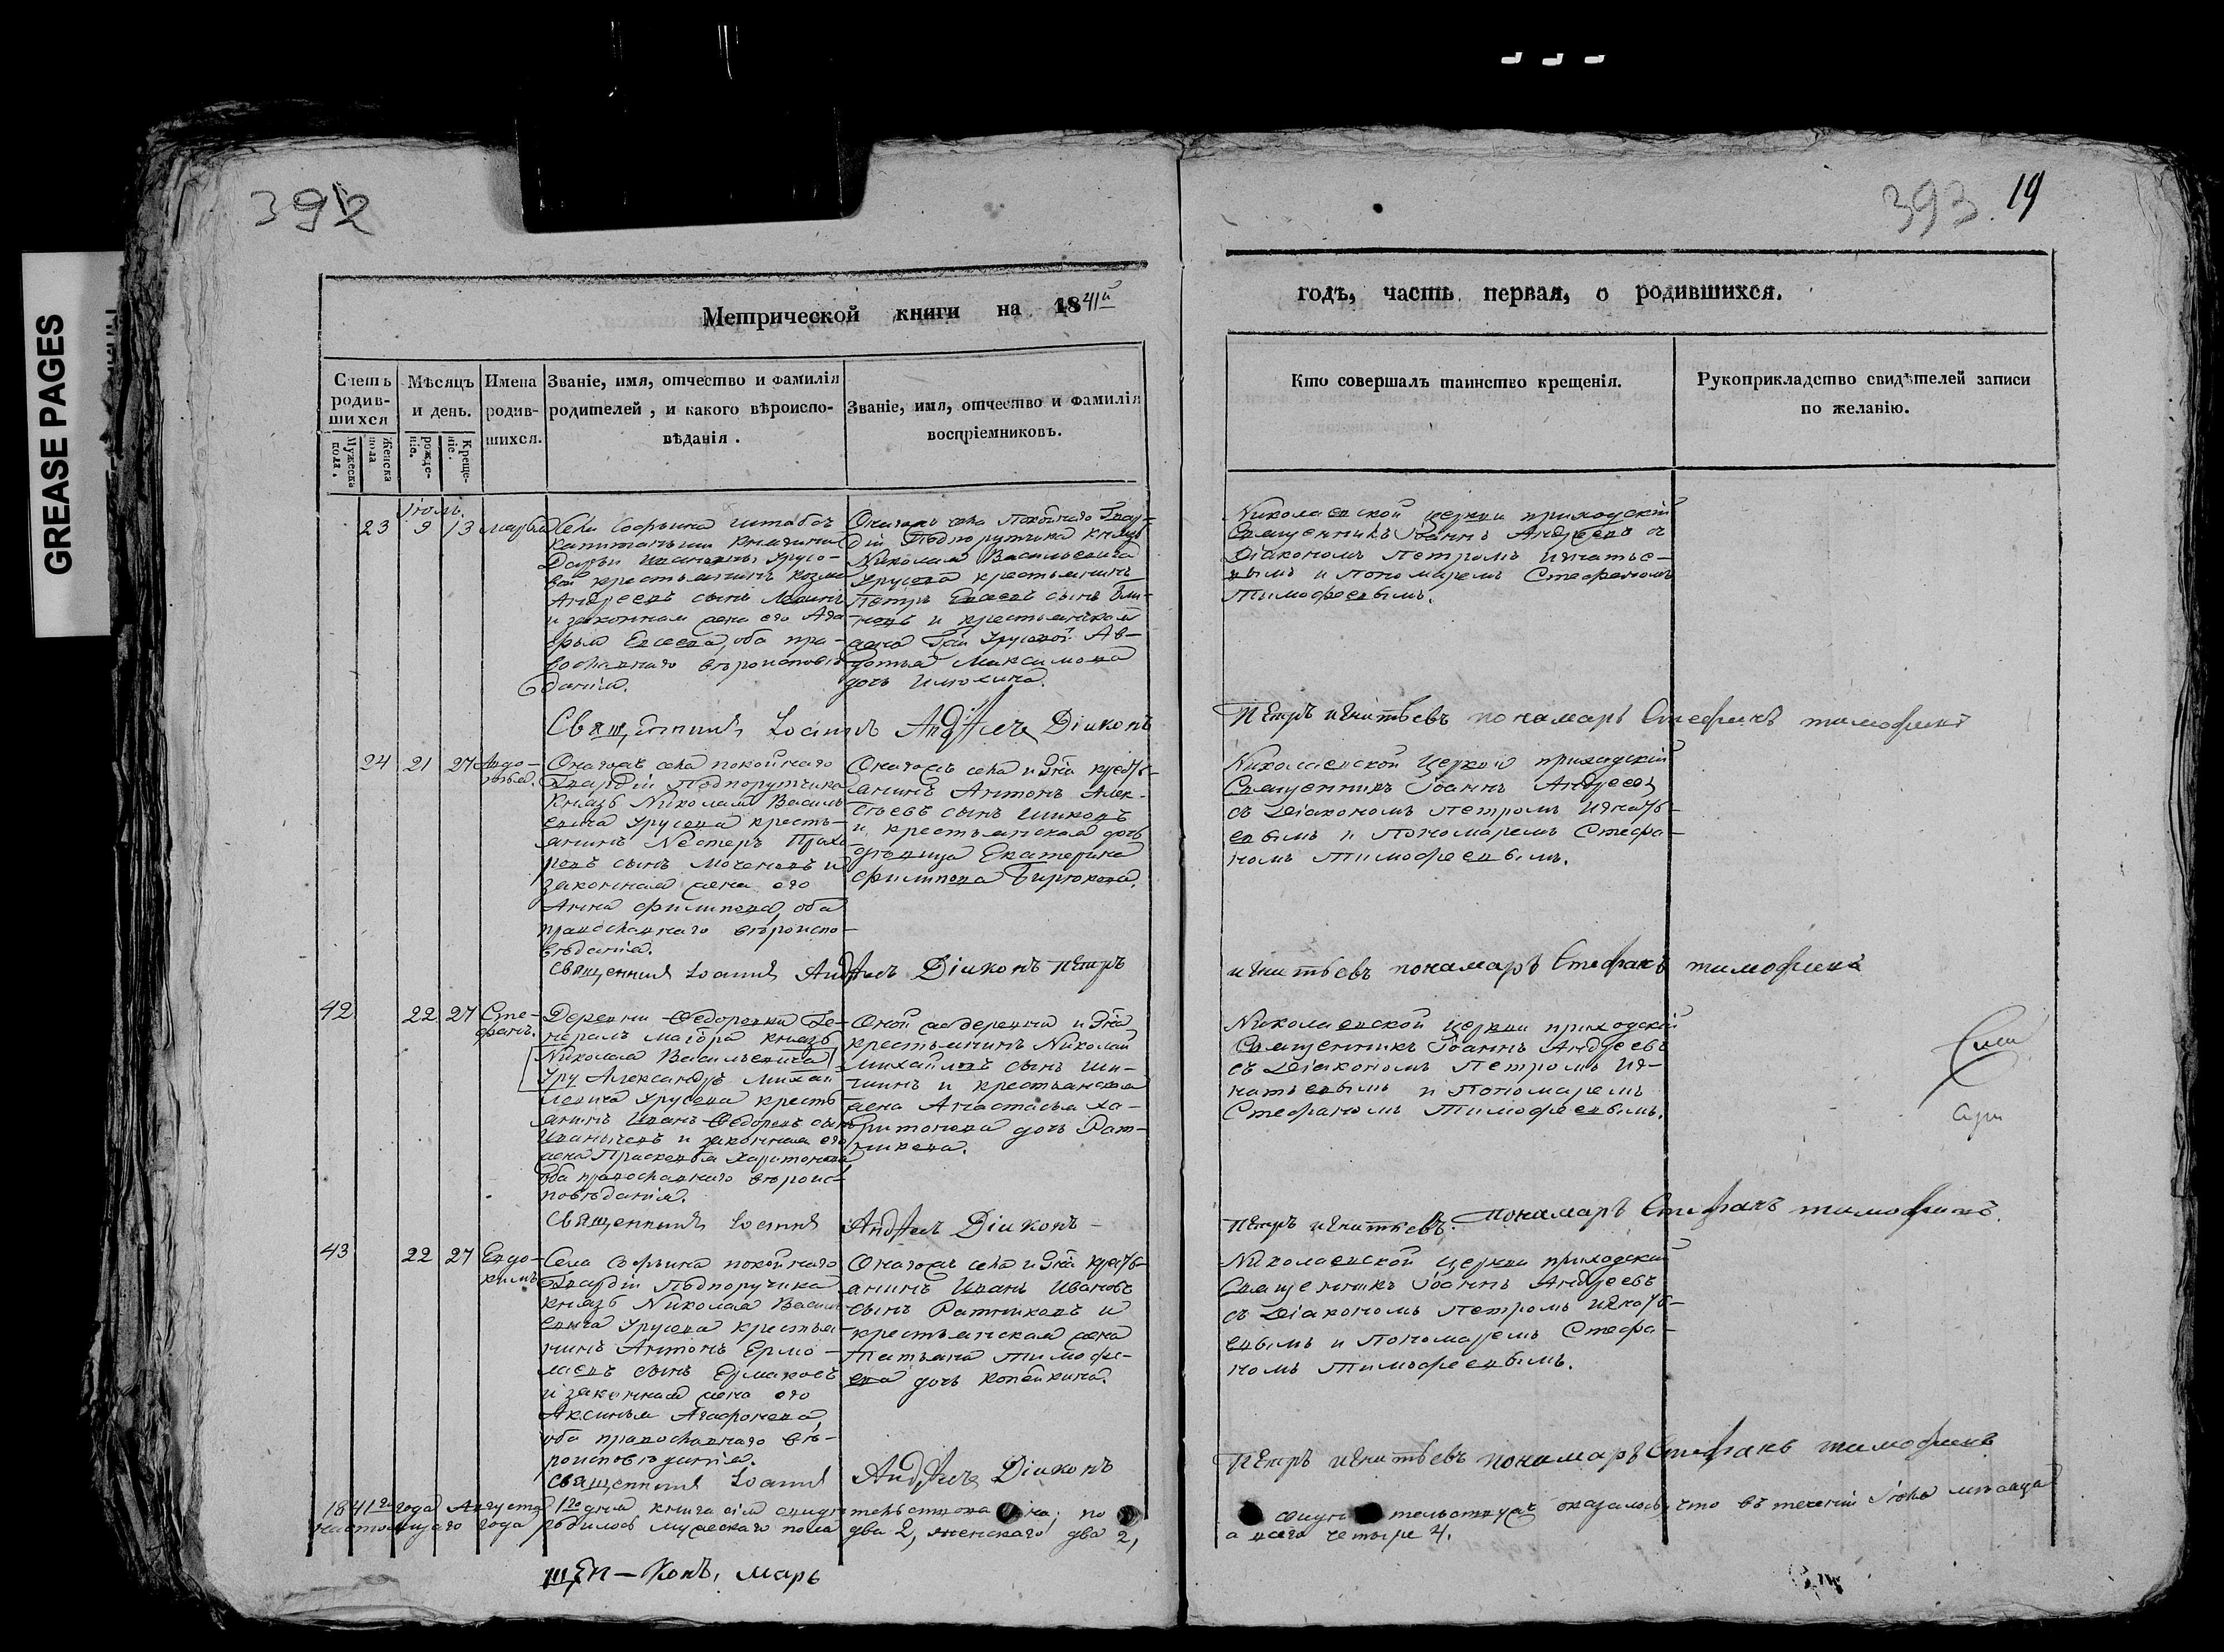 GREASE PAGES
392
393
19
Метрической книги на 1841й
годъ, часть первая, о родившихся.
Счетъ родив-
шихся
Мужеска пола.
Женска пола
Мѣсяцъ
и день.
рожде-
нія.
Креще-
нія.
Имена
родив-
шихся.
Званіе, имя, отчество и фамилія
родителей, и какого вѣроиспо-
вѣданія.
Званіе, имя, отчество и фамилія
воспріемниковъ.
Кто совершалъ таинство крещенія.
Рукоприкладство свидѣтелей записи
по желанію.
Іюль.
23
9
13
Села Софьина штабсъ
капитанши княгини
Дарьи Ивановны Урусо-
вой крестьянинъ Козма
Андреевъ сынъ
и законная жена его Ага
фья Евсеева, оба пра-
вославнаго вѣроисповѣ
данія.
Онагожъ села покойнаго Гвар-
діи Подпорутчика Князь
Николая Васильевича
Урусова крестьянинъ
Петръ сынъ Бли-
новъ и крестьянская
жена Гжи Урусовой Ав-
дотья Максимова
дочь Илюхина.
Николаевской церкви приходскій
Священникъ Іоаннъ Андреевъ съ
Діакономъ Петромъ Игнатье-
вымъ и Пономаремъ Стефаномъ
Тимофеевымъ.
Священникъ Іоаннъ Андреевъ Діаконъ
Петръ Игнатьевъ пономарь Стефанъ тимофеевъ
24
21
27
Авдо-
тья.
Онагожъ села покойнаго
Гвардіи Подпорутчика
Князь Николая Василь
евича Урусова кресть-
янинъ Нестеръ Прохо
ровъ сынъ Моченовъ и
законная жена его
Анна Филипова, оба
православнаго вѣроиспо-
вѣданія.
Онагожъ села и Гна кресть-
янинъ Антонъ Алек-
сѣевъ сынъ Шиковъ
и крестьянская дочь
дѣвица Екатерина
Филипова Бирюкова.
Николаевской Церкви приходскій
Священникъ Іоаннъ Андреевъ
съ Діакономъ Петромъ Игнать-
евымъ и Пономаремъ Стефа-
номъ Тимофеевымъ.
Священникъ Іоаннъ Андреевъ Діаконъ Петръ
игнатьевъ пономарь Стефанъ тимофеевъ
42
22
27
Сте-
фанъ.
Деревни Федоровки Ге-
нералъ маіора Князь
Николая Васильевича
Уру Александръ Михаи
ловича Урусова кресть
янинъ Иванъ Федоровъ сынъ
Иванычевъ и законная его
жена Прасковья Харитонова
оба православнаго вѣроис-
повѣданія.
Оной же деревни и Гна
крестьянинъ Николай
Михайловъ сынъ Ши-
шинъ и крестьянская
жена Анастасья Ха-
ритонова дочь Рат-
никова.
Николаевской церкви приходскій
Священникъ Іоаннъ Андреевъ
съ Діакономъ Петромъ Иг-
натьевымъ и Пономаремъ
Стефаномъ Тимофеевымъ.
Священникъ Іоаннъ Андреевъ Діаконъ
Петръ игнатьевъ. пономарь Стефанъ тимофеевъ.
43
22
27
Евдо-
кимъ
Села Софьина покойнаго
Гвардіи Подпоручика
Князь Николая Василь
евича Урусова крестья-
нинъ Антонъ Ермо-
лаевъ сынъ Ермаковъ
и законная жена его
Аксинья Агафонова,
оба православнаго вѣ-
роисповѣданія.
Онагожъ села и Гна кресть-
янинъ Иванъ Ивановъ
сынъ Ратниковъ и
крестьянская жена
Татьяна Тимофе-
ева дочь Копейкина.
Николаевской церкви приходскій
Священникъ Іоаннъ Андреевъ
съ Діакономъ Петромъ Игнать-
евымъ и Пономаремъ Стефа-
номъ Тимофеевымъ.
Священникъ Іоаннъ Андреевъ Діаконъ
Петръ игнатьевъ пономарь Стефанъ тимофеевъ
1841го года Августа 1го дня книга сія свидѣтельствована; по свидѣтельству оказалось, что въ теченіи Іюля мѣсяца
настоящаго года родилось мужескаго пола два 2, женскаго два 2, а всего четыре 4.
щен — Конъ, марь